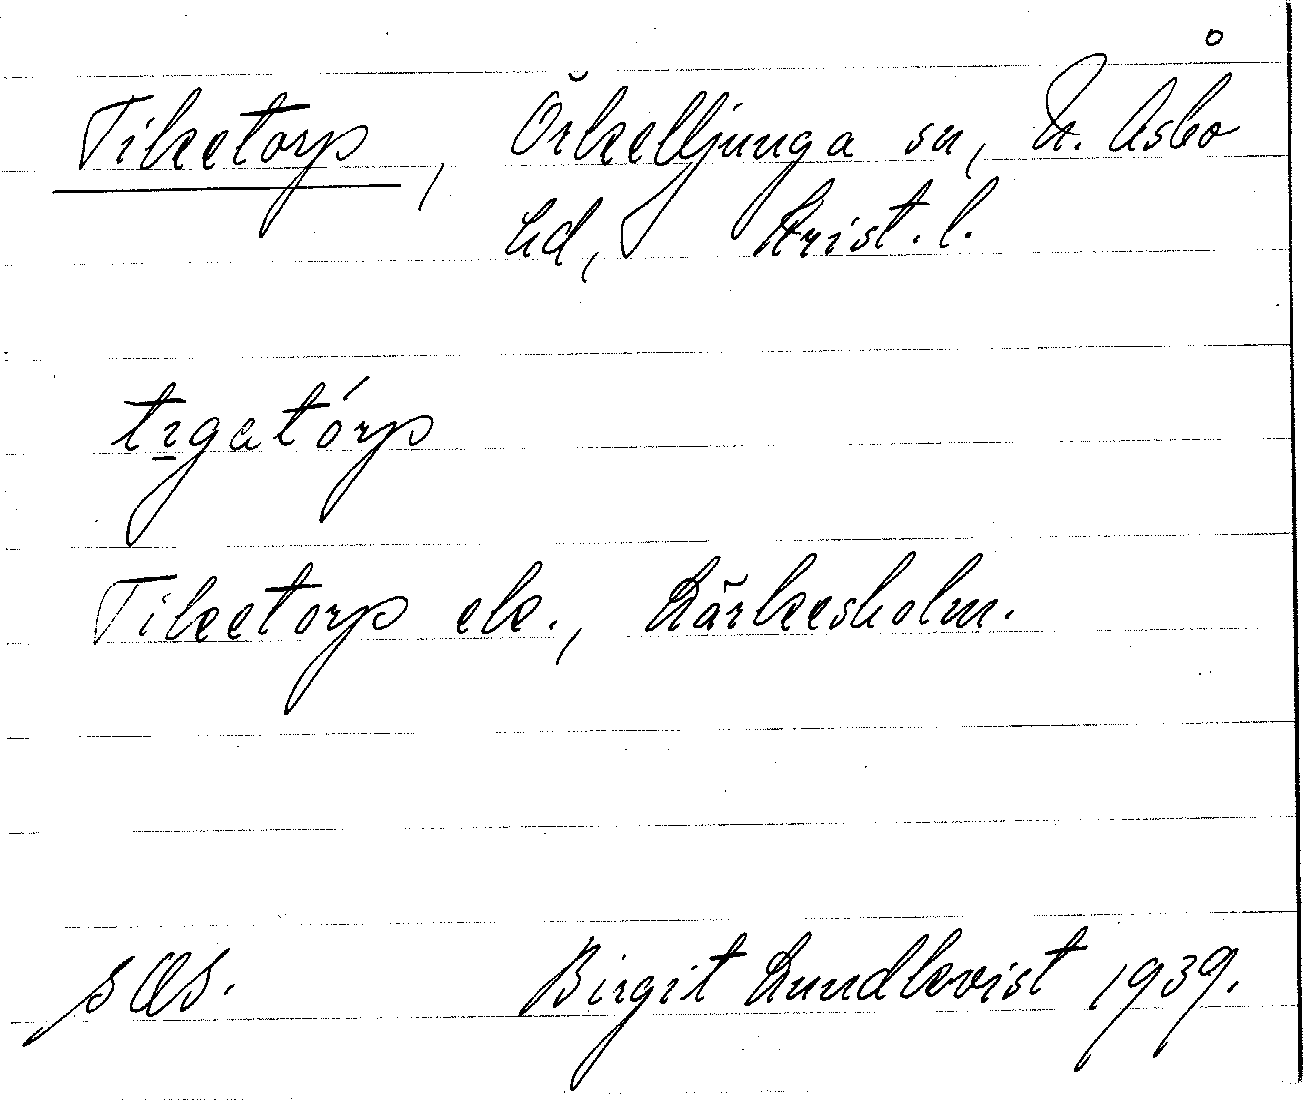 Tiketorp, Örkelljunga sn, N. Åsbo
hd, Krist. l.
tɩgatórp
Tiketorp ek., Kärkesholm.
sOs. Birgit Lundkvist 1939.